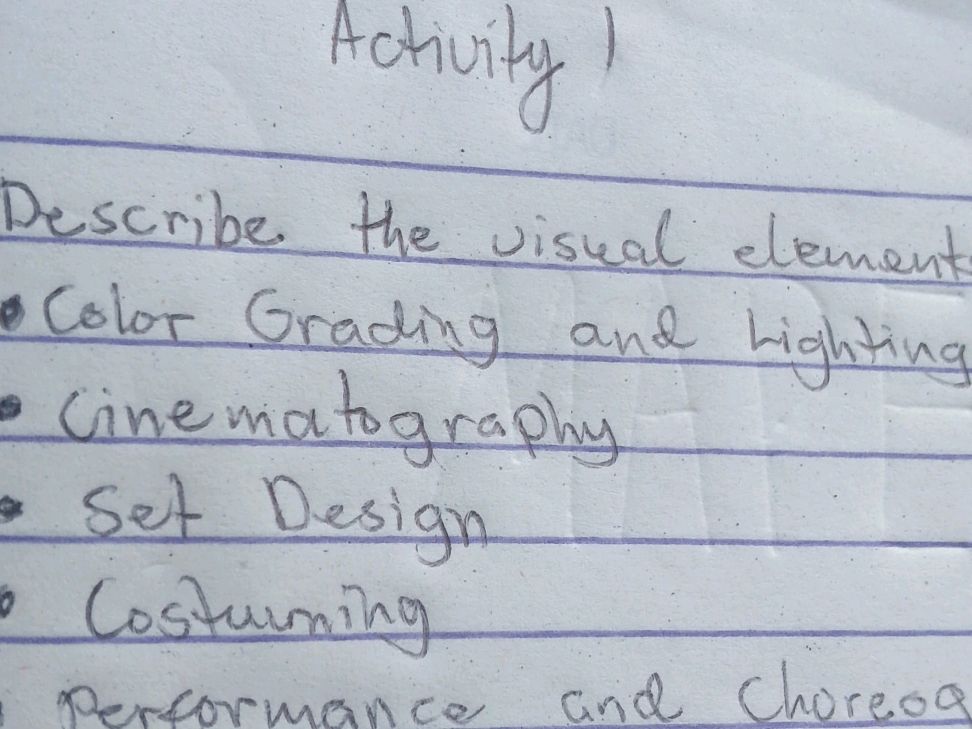 Activity 1
Describe the visual element
• Color Grading and Lighting
• Cinematography
• Set Design
• Costuming
• Performance and Choreog